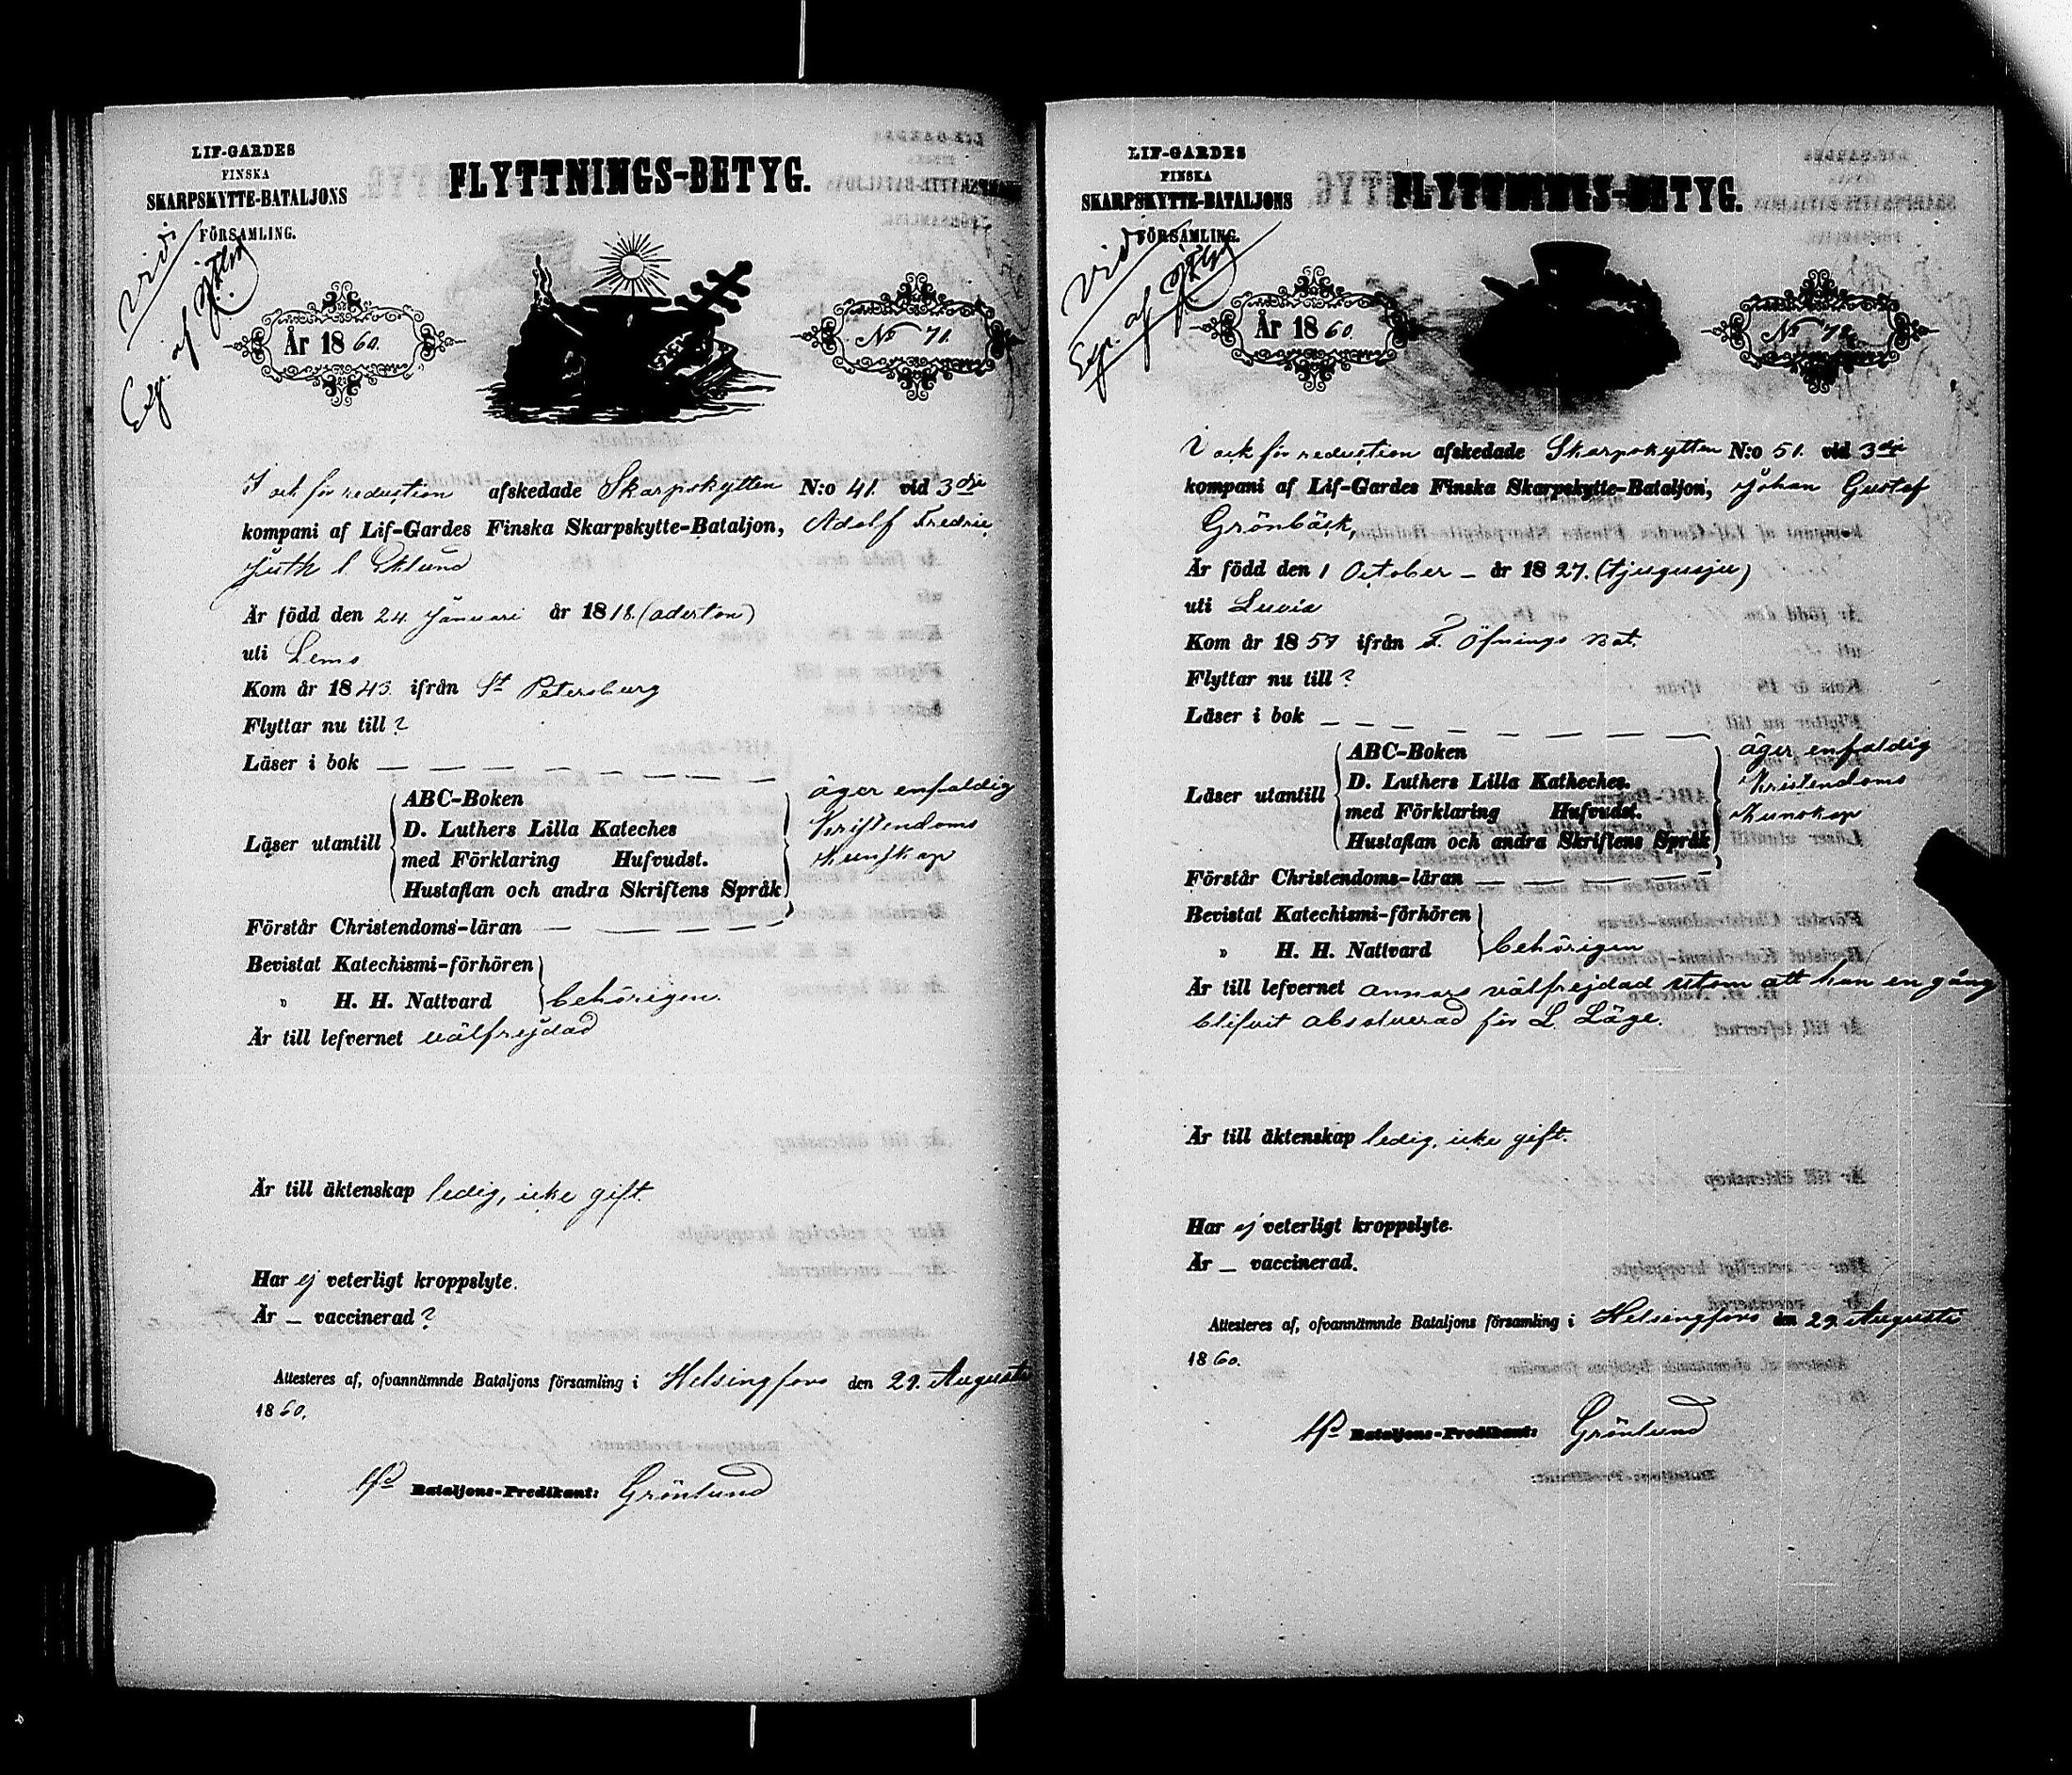 LIF-GARDES
FINSKA
SKARPSKYTTE-BATALJONS
FÖRSAMLING.
FLYTTNINGS-BETYG.
Vidi
Exp. af
År 1860.
No 71.
I och för reduction afskedade Skarpskytten N:o 41. vid 3dje
kompani af Lif-Gardes Finska Skarpskytte-Bataljon, Adolf Fredric
Juth l. Eklund
Är född den 24. Januari år 1818. (aderton)
uti Lemo
Kom år 1843. ifrån St Petersburg
Flyttar nu till ?
Läser i bok — — — — — — —
Läser utantill
ABC-Boken
D. Luthers Lilla Kateches
med Förklaring Hufvudst.
Hustaflan och andra Skriftens Språk
äger enfaldig
Kristendoms
kunskap
Förstår Christendoms-läran — — — — — —
Bevistat Katechismi-förhören
" H. H. Nattvard
behörigen.
Är till lefvernet välfrejdad
Är till äktenskap ledig, icke gift.
Har ej veterligt kroppslyte.
Är — vaccinerad ?
Attesteres af, ofvannämnde Bataljons församling i Helsingfors den 29. Augusti
1860.
Bataljons-Predikant: Grönlund
LIF-GARDES
FINSKA
SKARPSKYTTE-BATALJONS
FÖRSAMLING.
FLYTTNINGS-BETYG.
Vidi
Exp. af
År 1860.
No 72.
I och för reduction afskedade Skarpskytten N:o 51. vid 3dje
kompani af Lif-Gardes Finska Skarpskytte-Bataljon, Johan Gustaf
Grönbäck,
Är född den 1 October — år 1827. (tjugusju)
uti Luvia
Kom år 1857 ifrån F. Öfnings Bat.
Flyttar nu till ?
Läser i bok — — — — — — —
Läser utantill
ABC-Boken
D. Luthers Lilla Katheches.
med Förklaring Hufvudst.
Hustaflan och andra Skriftens Språk
äger enfaldig
Kristendoms
kunskap
Förstår Christendoms-läran — — — — — —
Bevistat Katechismi-förhören
" H. H. Nattvard
behörigen
Är till lefvernet annars välfrejdad utom att han en gång
blifvit absolverad för L. Läge.
Är till äktenskap ledig, icke gift.
Har ej veterligt kroppslyte.
Är — vaccinerad.
Attesteres af, ofvannämnde Bataljons församling i Helsingfors den 29. Augusti
1860.
Bataljons-Predikant: Grönlund